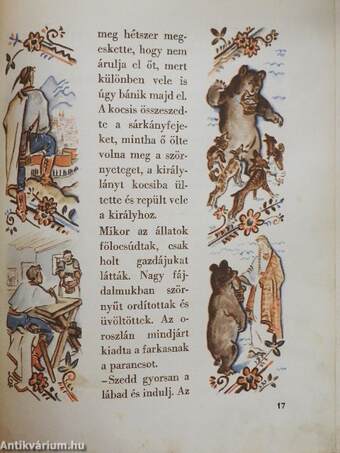 meg hétszer meg-
eskette, hogy nem
árulja el őt, mert
különben vele is
úgy bánik majd el.
A kocsis összeszed-
te a sárkányfeje-
ket, mintha ő ölte
volna meg a ször-
nyeteget, a király-
lányt kocsiba ül-
tette és repült vele
a királyhoz.
Mikor az állatok
fölocsúdtak, csak
holt gazdájukat
látták. Nagy fáj-
dalmukban ször-
nyűt ordítottak és
üvöltöttek. Az o-
roszlán mindjárt
kiadta a farkasnak
a parancsot.
–Szedd gyorsan a
lábad és indulj. Az
17
Antikvárium.hu